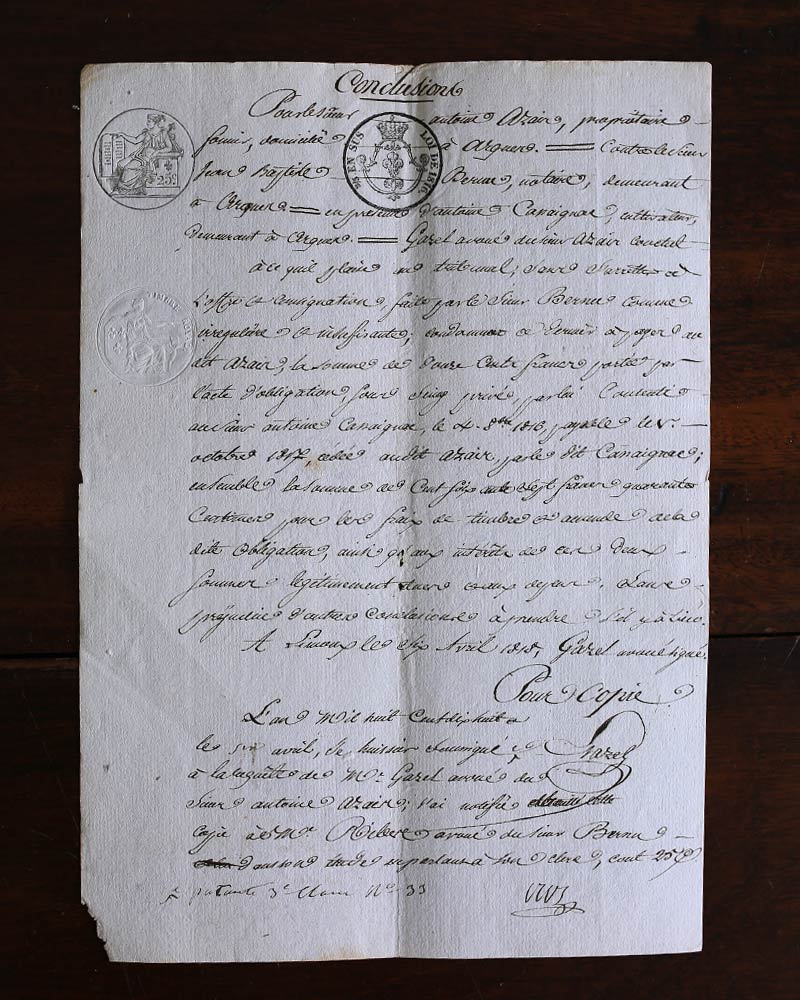 Conclusions
Pour le Sieur antoine Azair, propriétaire
foncier, domicilié à Arques. = Contre le Sieur
Jean Baptiste Bernu, notaire, demeurant
à Arques = en présence d'antoine Cansaignac, cultivateur,
demeurant à Arques. = Gazel avoué du sieur Azair conclud
à ce qu'il plaise au tribunal, sans s'arrêter à
L'offre et consignation, faite par le Sieur Bernu comme
irrégulière et insuffisante; condamner ce dernier à payer au
dit Azair, la somme de douze Cents francs portée par
l'acte d'obligation, sous seing privé, par lui Consenti
au Sieur antoine Cansaignac, le 4. 8bre 1816, payable le
octobre 1817, cédée audit Azair par le dit Cansaignac;
ensemble la somme de Cent sept francs quarante
Centimes pour les frais de timbre et amende de la
dite obligation, ainsi qu'aux intérêts de ces deux
sommes légitimement dues et aux depens, sans
préjudice d'autres Conclusions à prendre s'il y a Lieu.
A Limoux le Six Avril 1818, Gazel avoué signé.
Pour Copie
L'an Mil huit Cent dix huit et
le six avril, Je huissier soussigné
Gazel
à la requête de Me. Gazel avoué du
Sieur antoine Azair; j'ai notifié
copie à Me. avoué du sieur Bernu
dans son étude en parlant à son clerc, cout 25c
patente 3e Classe No. 33
25 EN SUS LOI DE 1816
25c
TIMBRE ROYAL